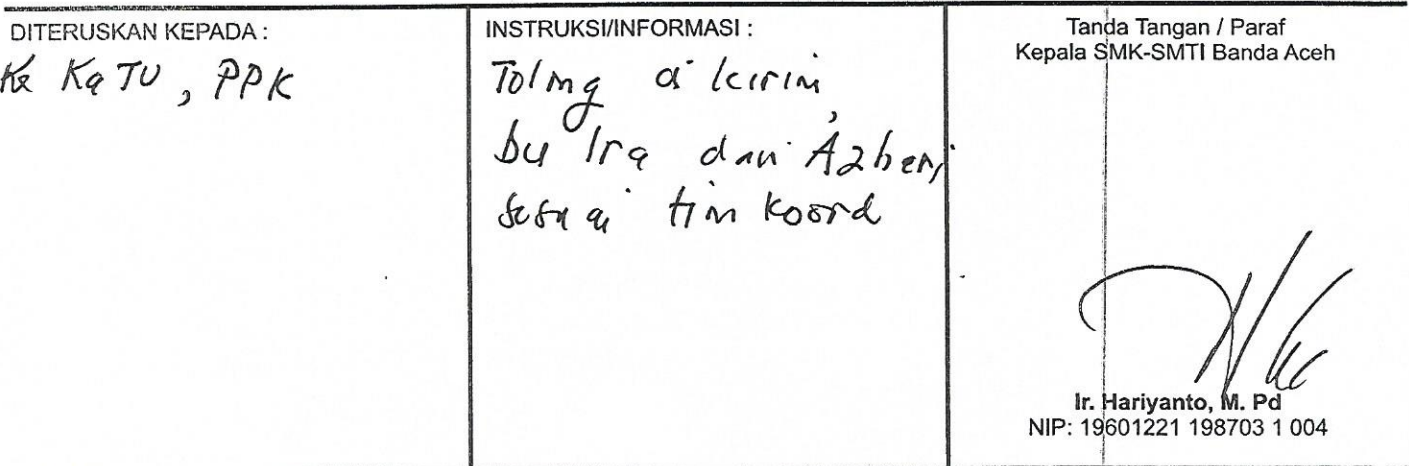 DITERUSKAN KEPADA :
Ke Ka TU, PPK
INSTRUKSI/INFORMASI :
Tolong di kirim
bu Ira dan Azhari,
sesuai tim Koord
Tanda Tangan / Paraf
Kepala SMK-SMTI Banda Aceh
Ir. Hariyanto, M. Pd
NIP: 19601221 198703 1 004